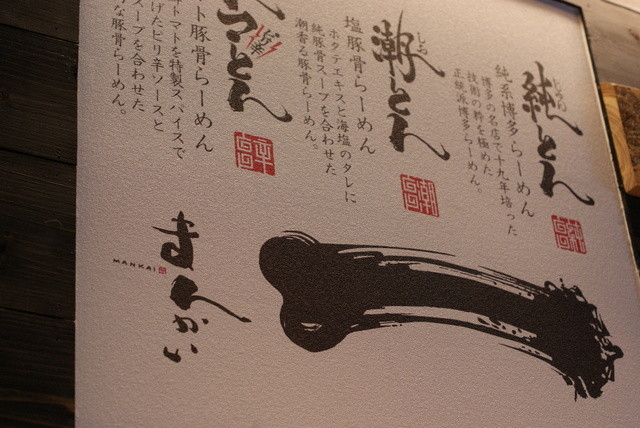 純とん
純系博多らーめん
博多の名店で十九年培った
技術の粋を極めた
正統派博多らーめん。
純
潮とん
しお
塩豚骨らーめん
ホタテエキスと海塩のタレに
純豚骨スープを合わせた
潮香る豚骨らーめん。
潮
マとん
ピリ辛
ト豚骨らーめん
トマトを特製スパイスで
げたピリ辛ソースと
スープを合わせた
な豚骨らーめん。
辛
まんかい
MANKAI